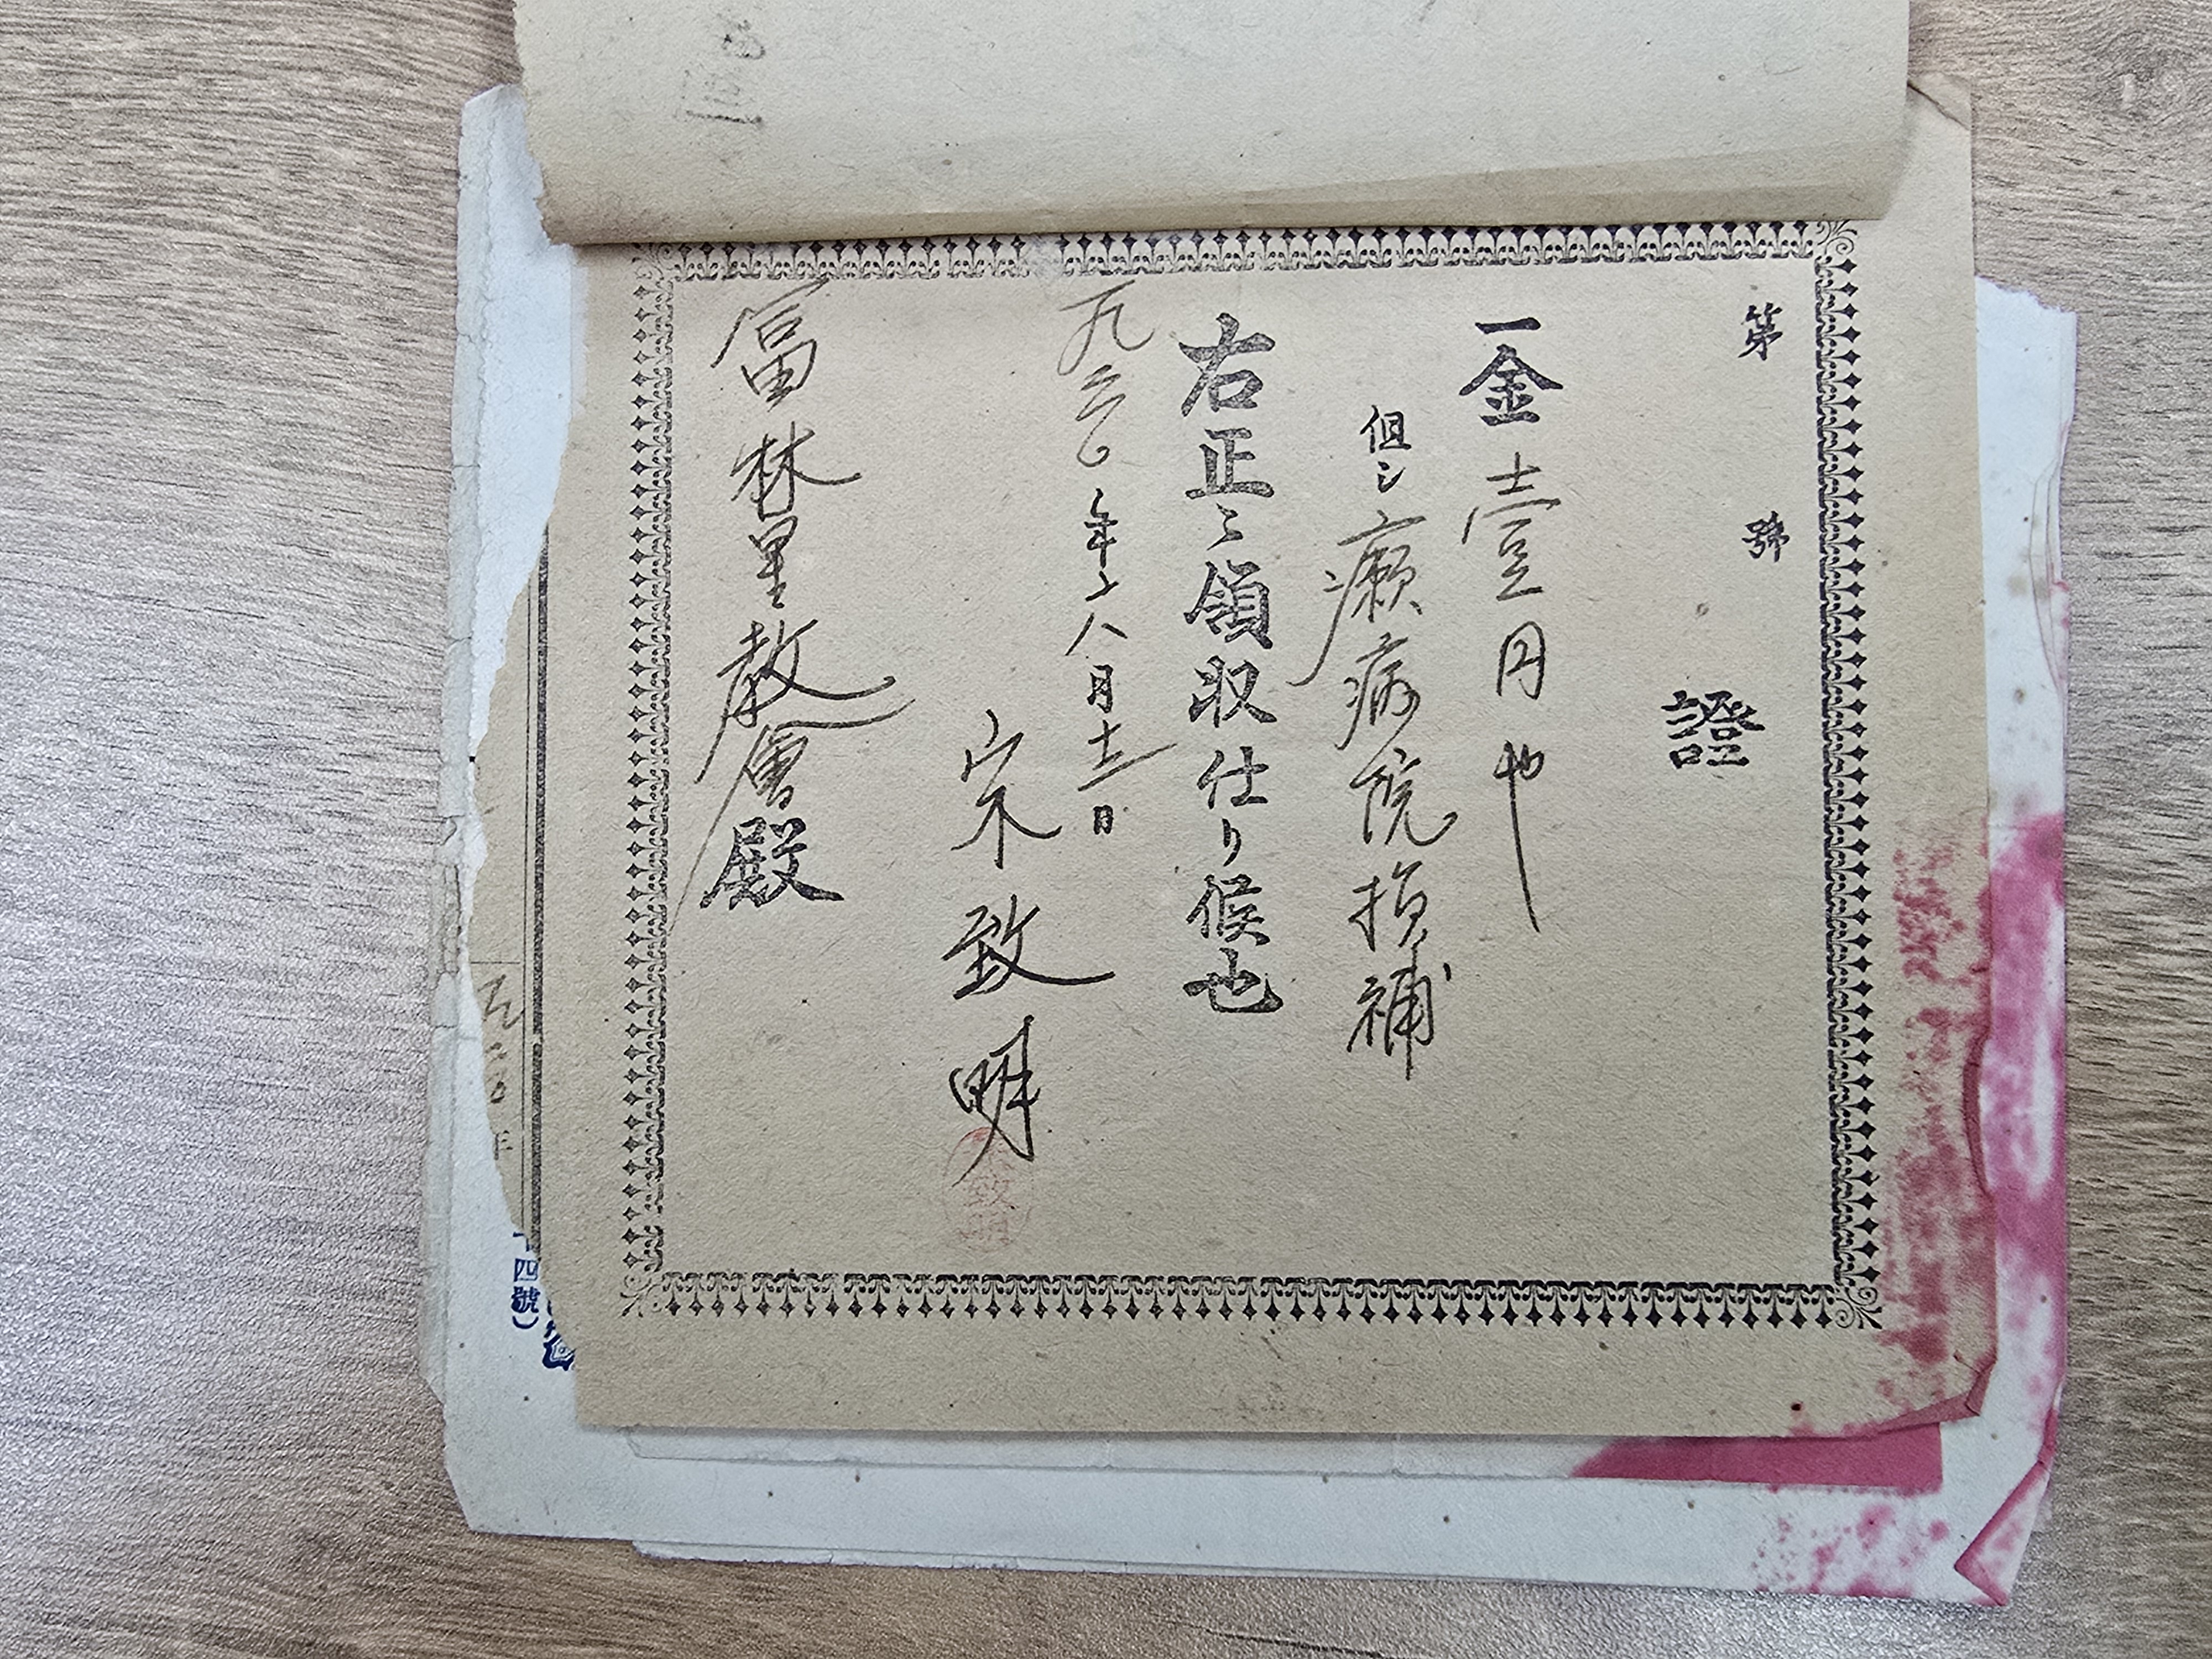 第　號
證
一金壹円也
但シ癩病院損補
右正ニ領収仕リ候也
九三〇年八月十一日
宋致明
冨林里教會殿
四號)